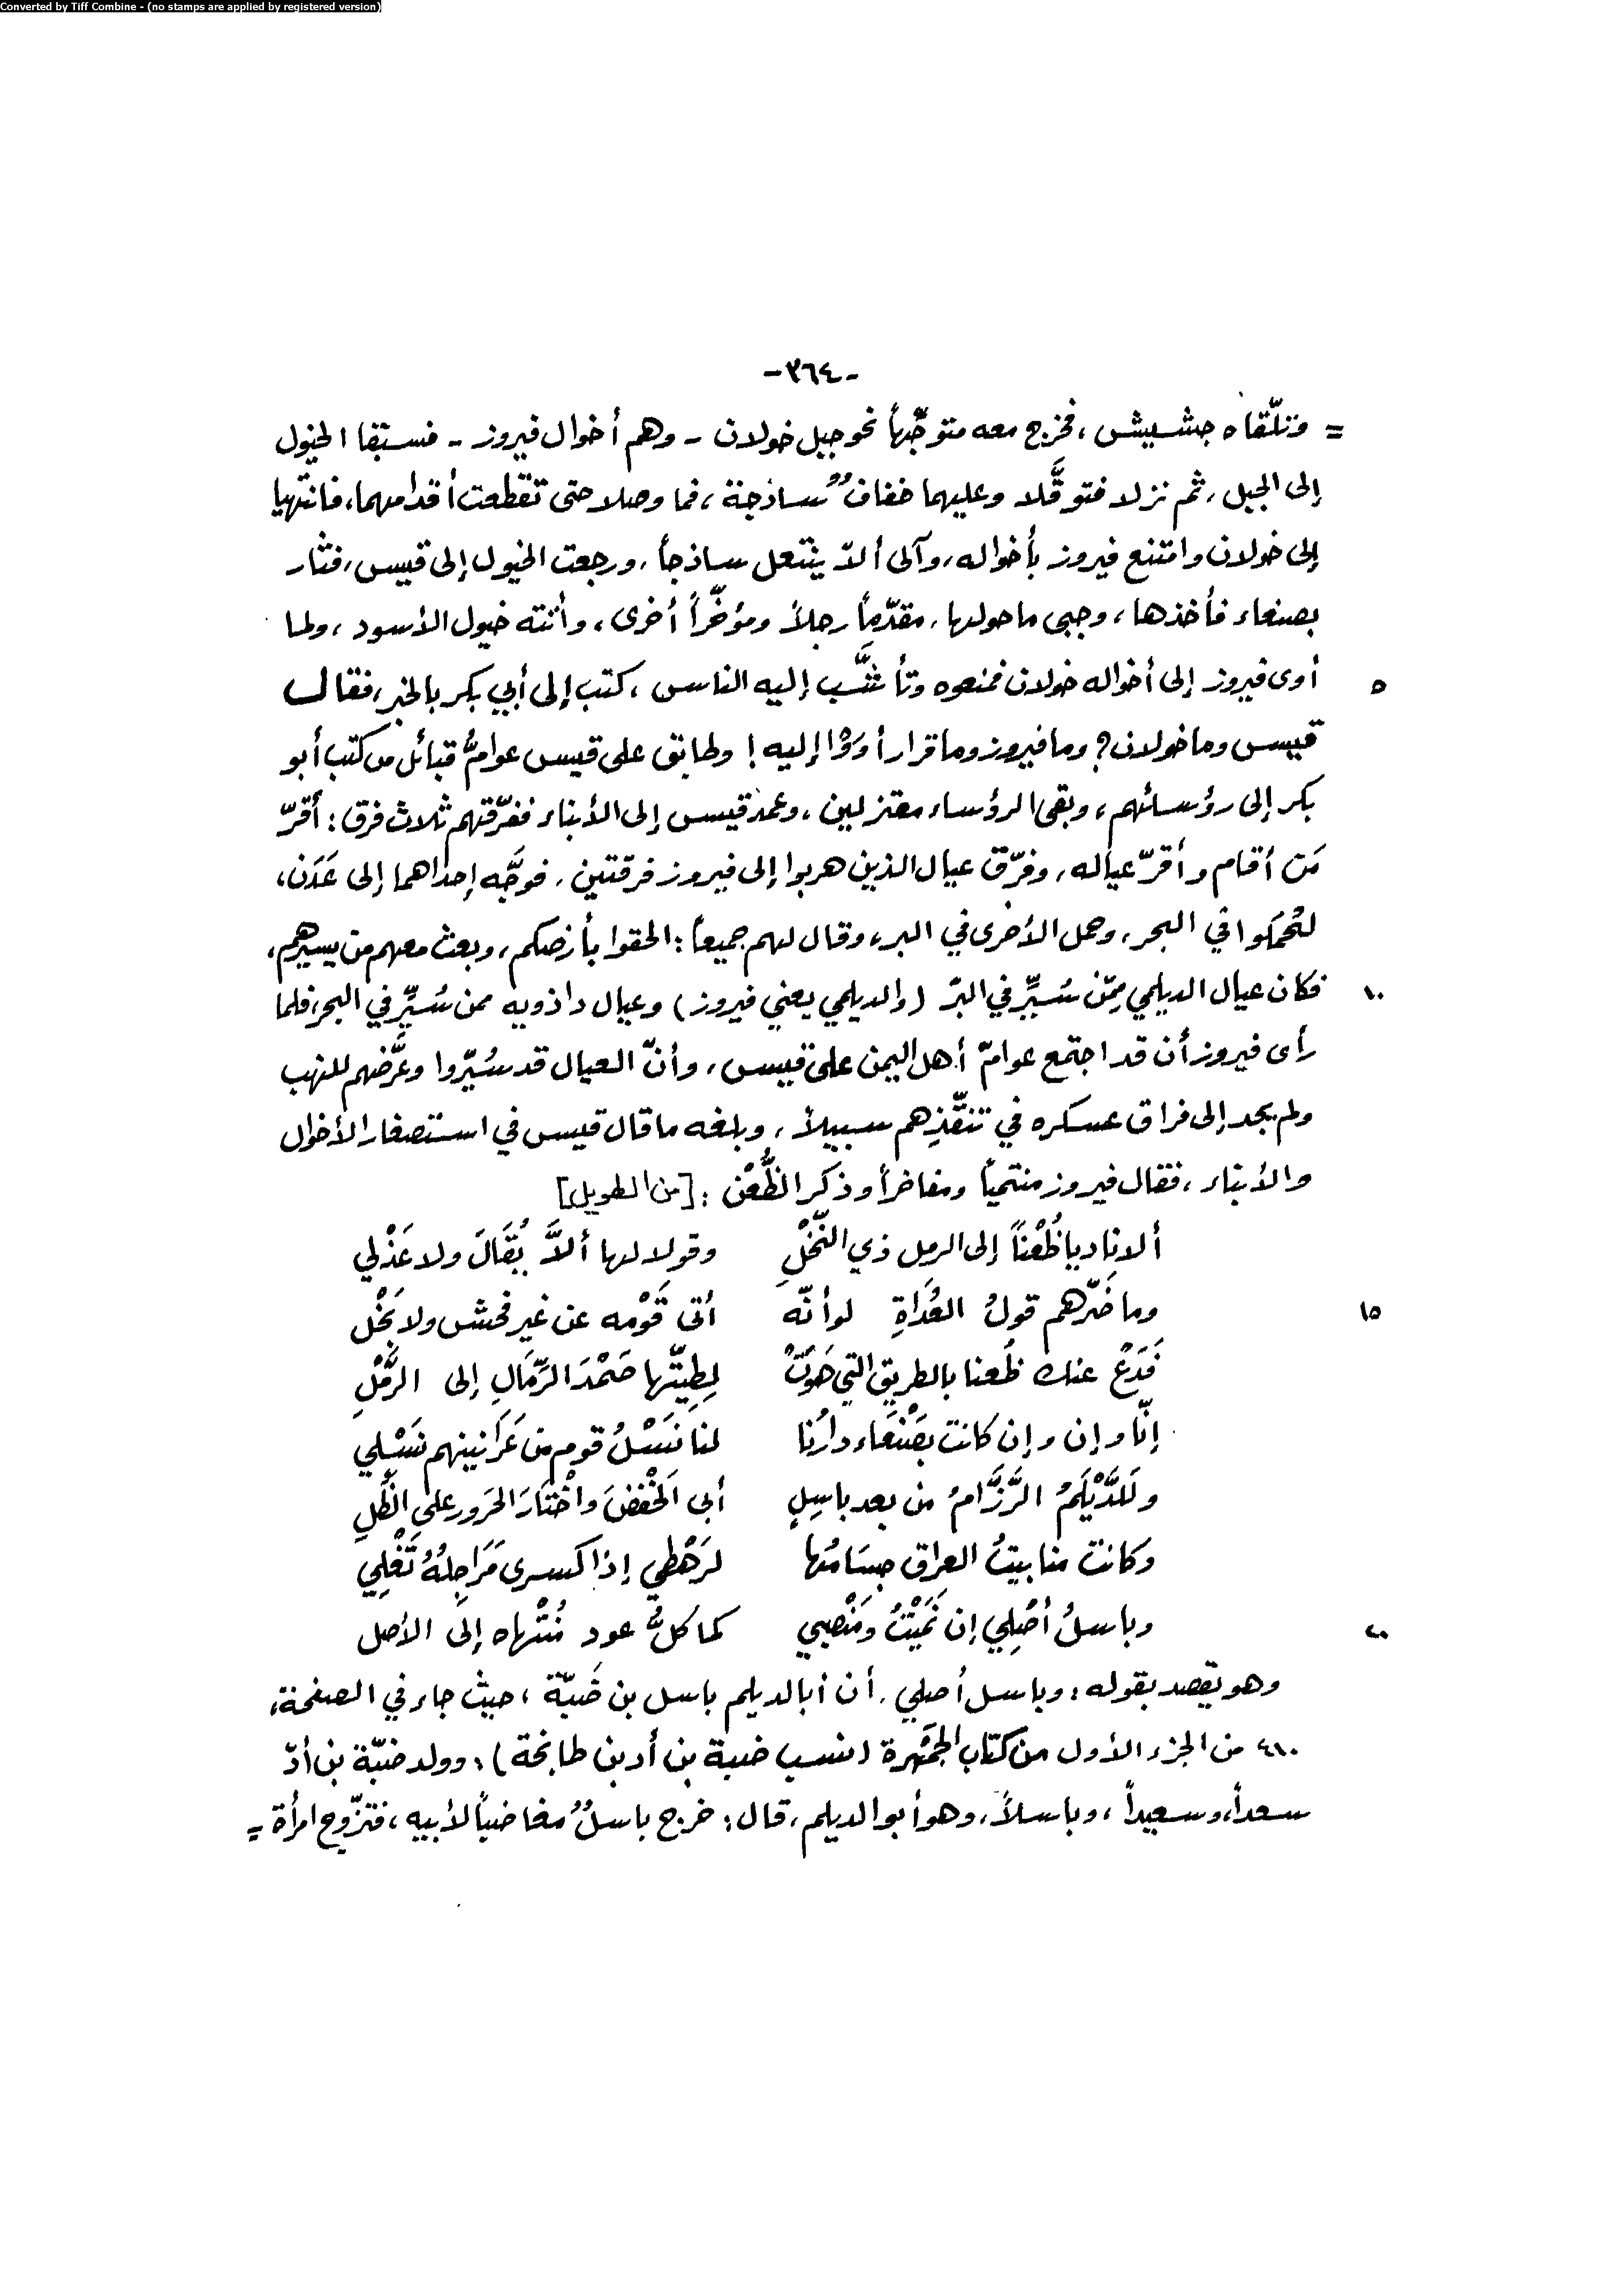 Converted by Tiff Combine - (no stamps are applied by registered version)
-٣٦٤-
= فتلّقاه جشيش، فخرج معه متوجّهاً نحو جبل خولان - وهم أخوال فيروز - فسبقا الخيول
إلى الجبل، ثم نزلا فتوقَّلا وعليهما خفافٌ ساذجة، فما وصلا حتى تقطعت أقدامهما، فانتهيا
إلى خولان وامتنع فيروز بأخواله، وآلى ألاّ ينتعل ساذجاً، ورجعت الخيول إلى قيس، فثار
بصنعاء فأخذها، وجبى ماحولها، مقدّماً رجلاً ومؤخّراً أخرى، وأتته خيول الأسود، ولما
أوى فيروز إلى أخواله خولان فمنعوه وتأشَّب إليه الناس، كتب إلى أبي بكر بالخبر، فقال ٥
قيس وما خولان؟ وما فيروز وما قرار أووْا إليه! وطابق على قيس عوامُّ قبائل من كتب أبو
بكر إلى رؤسائهم، وبقي الرؤساء معتزلين، وعمد قيس إلى الأبناء ففرّقهم ثلاث فرق: أقرّ
مَن أقام وأقرّ عياله، وفرّق عيال الذين هربوا إلى فيروز فرقتين، فوجَّه إحداهما إلى عَدَن،
لتُحمَلوا في البحر، وحمل الأخرى في البر، وقال لهم جميعاً: الحقوا بأرضكم، وبعث معهم من يسيرهم،
فكان عيال الديلمي مِمّن سُيِّر في البرّ (والديلمي يعني فيروز) وعيال داذويه ممن سُيِّر في البحر، فلما ١٠
رأى فيروز أن قد اجتمع عوامّ أهل اليمن على قيس، وأنّ العيال قد سُيّروا وعرَّضهم للنهب
ولم يجد إلى فراق عسكره في تنقُّذِهم سبيلاً، وبلغه ماقال قيس في استصغار الأخوال
والأبناء، فقال فيروز منتمياً ومفاخراً وذكر الظُّعْن: [من الطويل]
ألا ناديا ظُعْناً إلى الرمل ذي النّخْلِ وقولا لها ألاَّ يُقَالَ ولا عَذْلي
وما ضَرّهم قولُ العُدَاةِ لو أنّه أتى قَوْمه عن غير فحش ولا بَخْل ١٥
فَدَعْ عنك ظُعنا بالطريق التي هَوَتْ لِطِيّتِها صَمْدَ الرّمَالِ إلى الرَّمْلِ
إنّا وإن وإن كانت بصَنْعَاء دارُنا لنا نَسْلُ قوم من عَرَانينهم نَسْلي
ولَلدَّيْلَمُ الرَّزَّامُ من بعد باسِلٍ أبى الخَفْضَ واخْتَارَ الحَرور على الظِّلِ
وكانت منابيتُ العراق جِسَامُها لرَهْطي إذا كسرى مَرَاجِلُهُ تَغْلِي
وباسلُ أصْلِي إن نَمَيْتُ ومَنْصبي كما كلُّ عود مُنْتهاه إلى الأصل ٢٠
وهو يقصد بقوله: وباسل أصلي، أن أبا لديلم باسل بن ضَبّة، حيث جاء في الصفحة،
٤١٠ من الجزء الأول من كتاب الجَمْهرة (نسب ضبة بن أد بن طابخة): وولد ضبّة بن أدّ
سعداً، وسعيداً، وباسلاً، وهو أبو الديلم، قال: خرج باسلٌ مغاضباً لأبيه، فتزّوج امرأة =